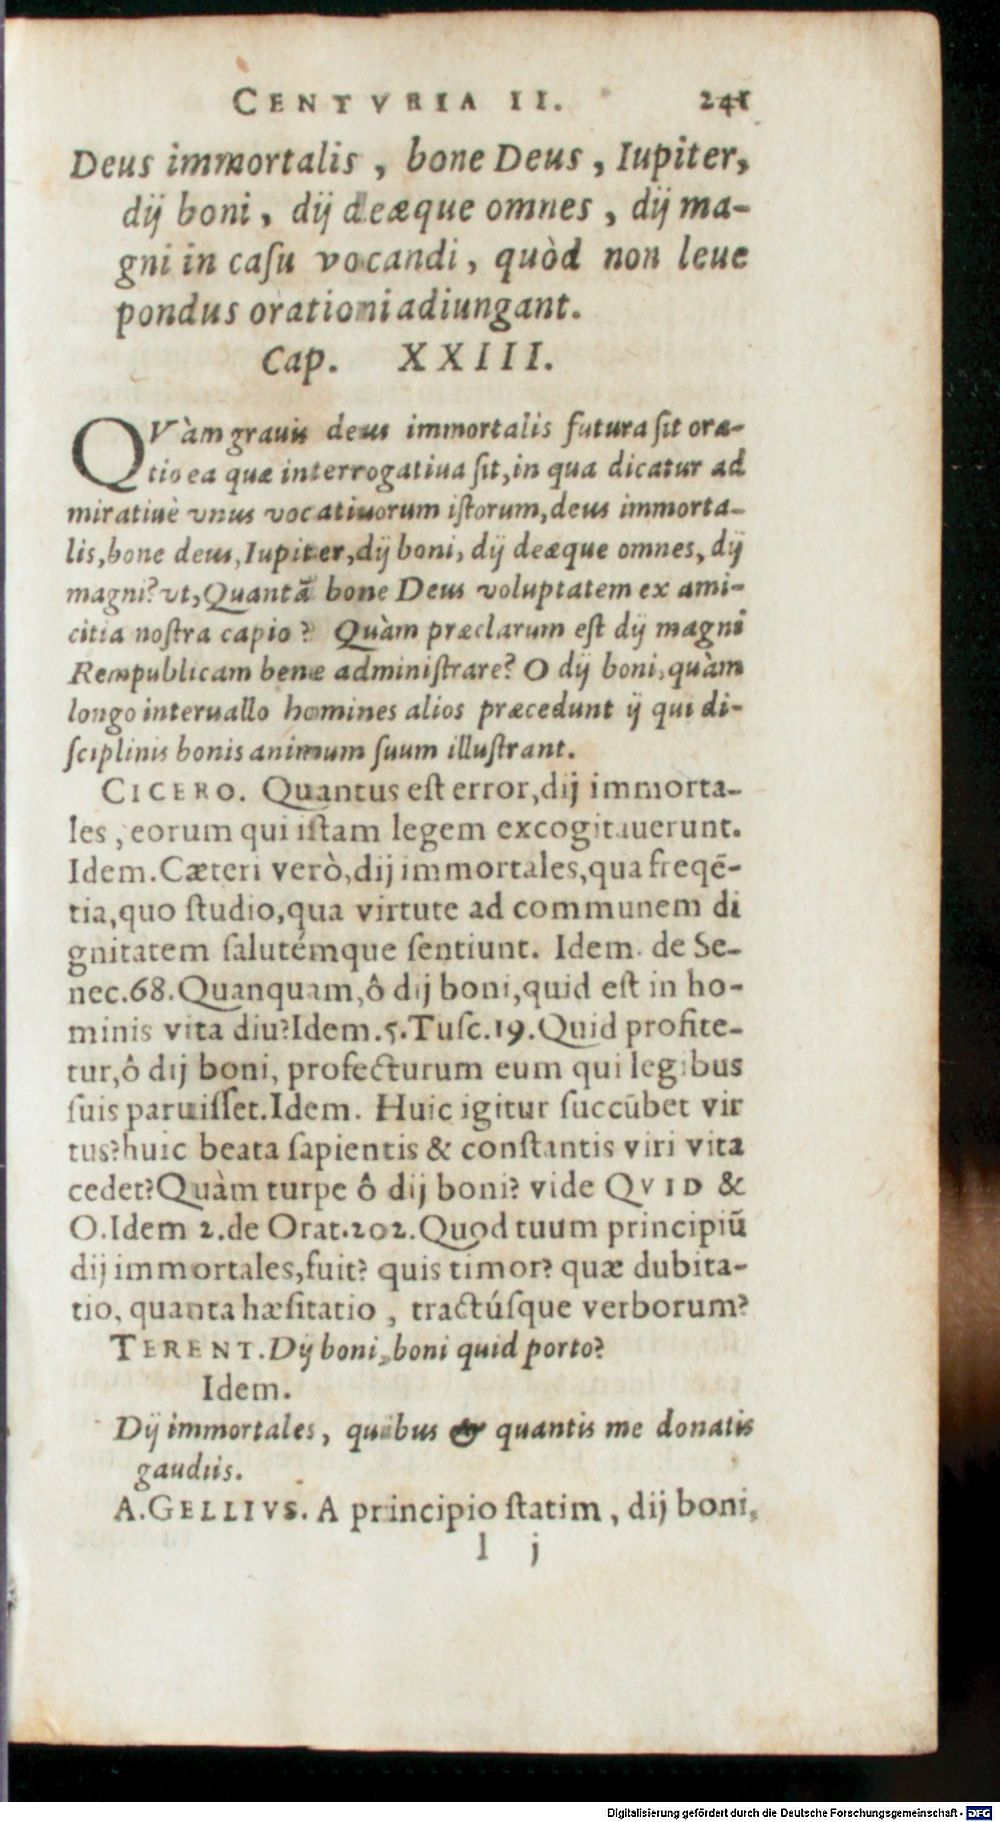 CENTVRIA II. 241
Deus immortalis, bone Deus, Iupiter,
dij boni, dij deæque omnes, dij ma-
gni in caſu vocandi, quòd non leue
pondus orationi adiungant.
Cap. XXIII.
QVàm grauis deus immortalis futura ſit ora-
tio ea quæ interrogatiua ſit, in qua dicatur ad
miratiuè vnus vocatiuorum iſtorum, deus immorta-
lis, bone deus, Iupiter, dij boni, dij deæque omnes, dij
magni? vt, Quantā bone Deus voluptatem ex ami-
citia noſtra capio? Quàm præclarum eſt dij magni
Rempublicam bene adminiſtrare? O dij boni, quàm
longo interuallo homines alios præcedunt ij qui di-
ſciplinis bonis animum ſuum illuſtrant.
CICERO. Quantus eſt error, dij immorta-
les, eorum qui iſtam legem excogitauerunt.
Idem. Cæteri verò, dij immortales, qua freqē-
tia, quo ſtudio, qua virtute ad communem di
gnitatem ſalutémque ſentiunt. Idem. de Se-
nec. 68. Quanquam, ô dij boni, quid eſt in ho-
minis vita diu? Idem. 5. Tuſc. 19. Quid profite-
tur, ô dij boni, profecturum eum qui legibus
ſuis paruiſſet. Idem. Huic igitur ſuccūbet vir
tus? huic beata ſapientis & conſtantis viri vita
cedet? Quàm turpe ô dij boni? vide QVID &
O. Idem 2. de Orat. 202. Quod tuum principiū
dij immortales, fuit? quis timor? quæ dubita-
tio, quanta hæſitatio, tractúſque verborum?
TERENT. Dij boni, boni quid porto?
Idem.
Dij immortales, quibus & quantis me donatis
gaudiis.
A. GELLIVS. A principio ſtatim, dij boni,
l j
Digitalisierung gefördert durch die Deutsche Forschungsgemeinschaft - DFG